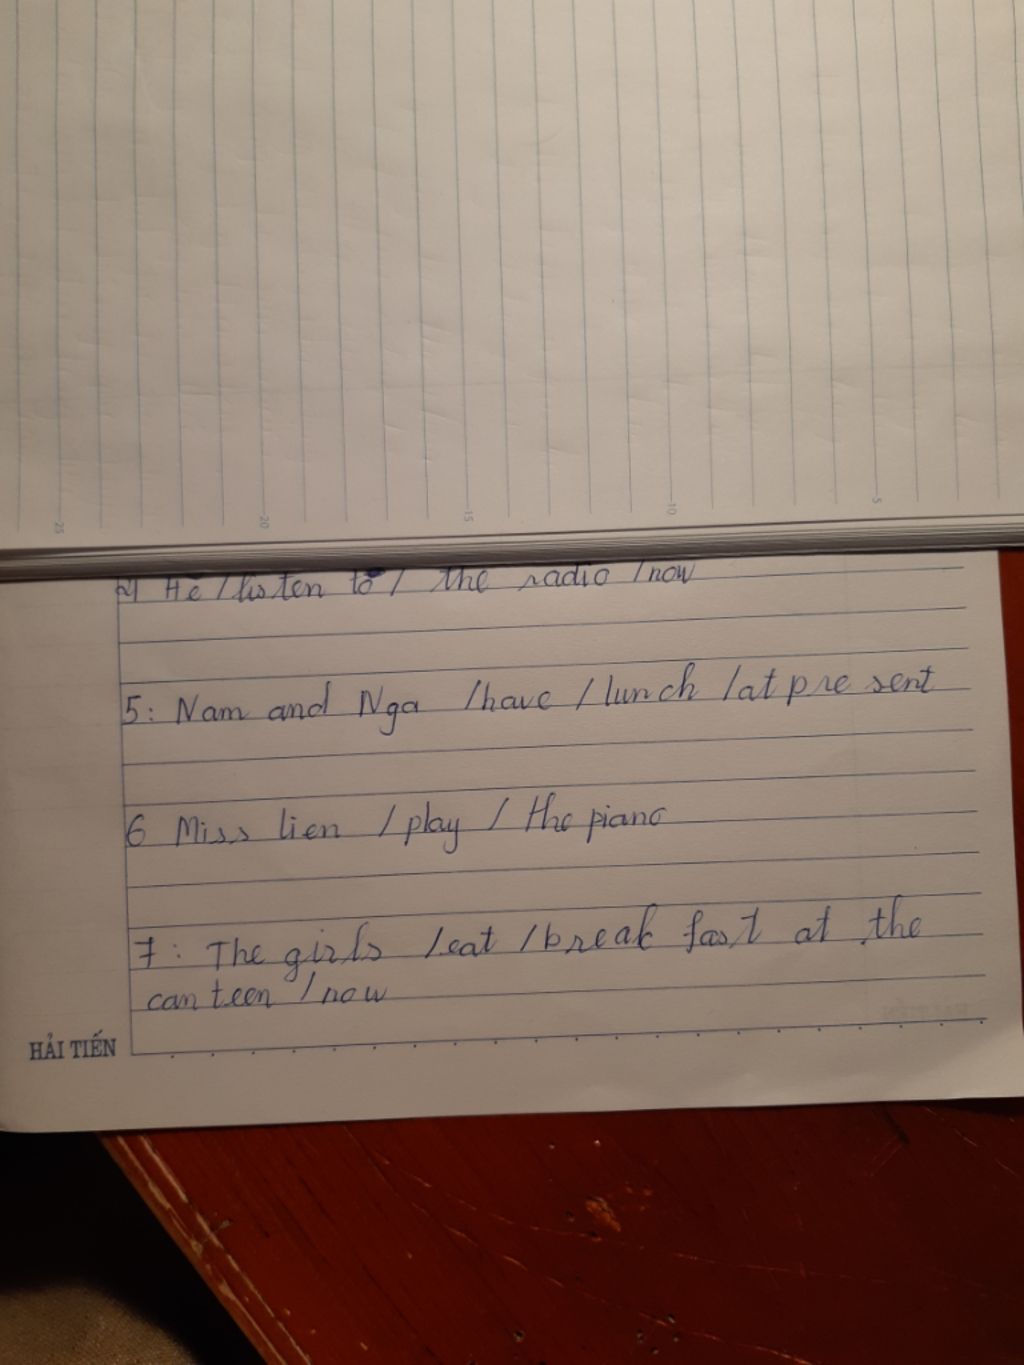 4 He / listen to / the radio / now
5: Nam and Nga / have / lunch / at pre sent
6 Miss lien / play / the piano
7: The girls / eat / break fast at the
can teen / now
HẢI TIẾN
25 20 15 10 5